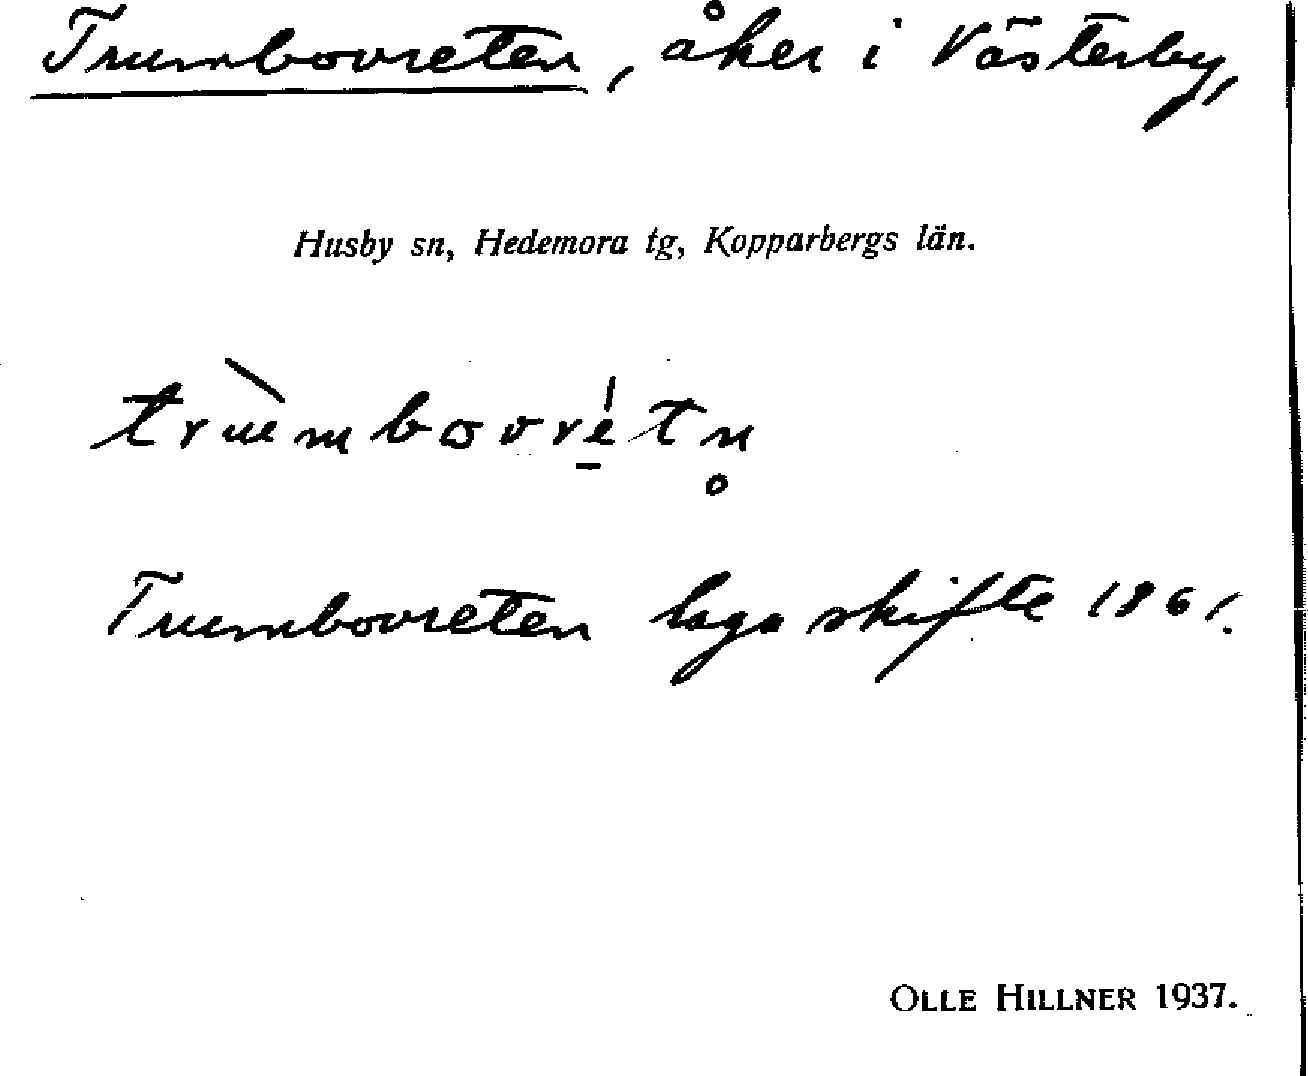 Trumbovreten, åker i Västerby,
Husby sn, Hedemora tg, Kopparbergs län.
trùmbovrétn̥
Trumbovreten laga skifte 1861.
OLLE HILLNER 1937.